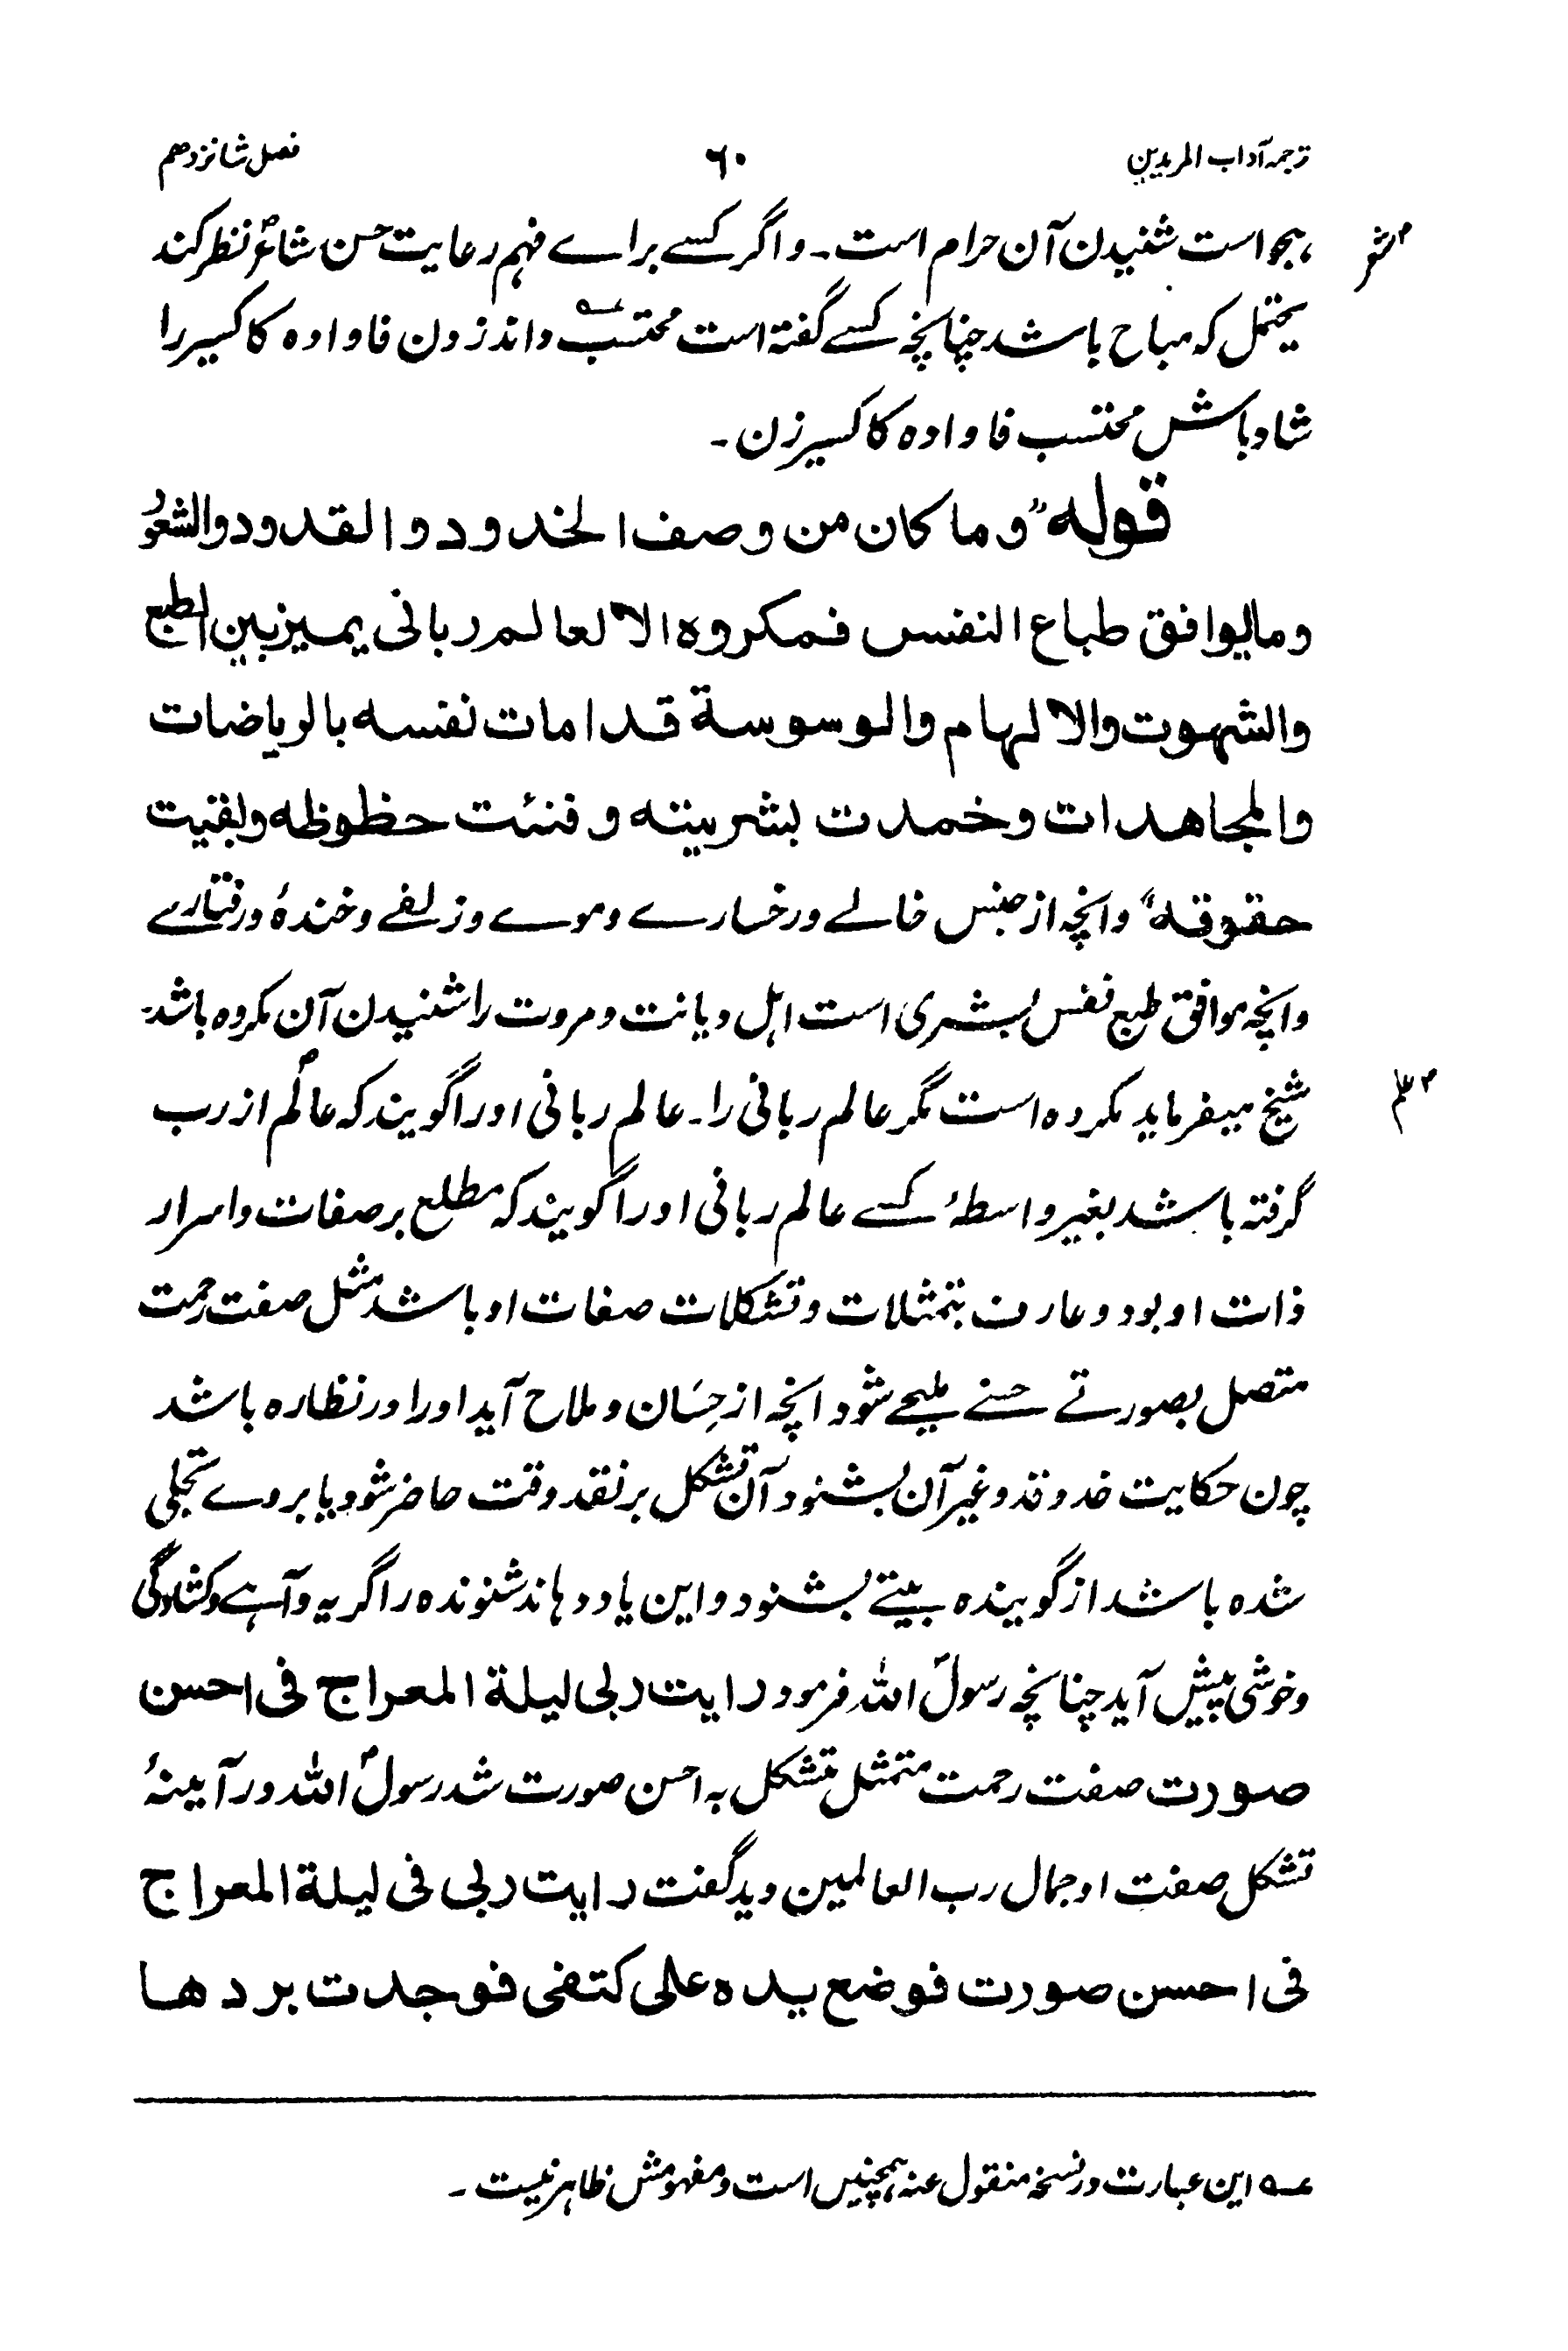 ترجمہ آداب المریدین ۶۰ فصل شانزدهم
هجو است شنیدن آن حرام است۔ و اگر کسے براے فہم رعایت حسن شاعرؐ نظر کند
یحتمل کہ مباح باشد چنانچہ کسے گفتہ است محتسب؎ داند زدن فا و ادہ کا کسیر را
شاد باش محتسب فا و ادہ کا کسیر زن۔
قولہ "و ما کان من وصف الخدود و القدود والشعور
وما یوافق طباع النفس فمکروہ الا لعالم ربانی یمیز بین الطبع
والشہوت والالہام والوسوسة قد امات نفسه بالریاضات
والمجاهدات وخمدت بشریته و فنئت حظوظه وبقیت
حقوقه" وانچہ از جنس خالے ورخسارے وموے وزلفے وخندۂ ورفتارے
وانچہ موافق طبع نفس بشری است اہل دیانت ومروت را شنیدن آن مکروہ باشد۔
شیخ میفرماید مکروہ است مگر عالم ربانی را۔ عالم ربانی اورا گویند کہ عالم از رب
گرفتہ باشد بغیر واسطۂ کسے عالم ربانی اورا گویند کہ مطلع بر صفات واسرار
ذات او بود وعارف بتمثلات وتشکلات صفات او باشد مثل صفت رحمت
متصل بصورتے حسنے ملیحے شود انچہ از حِسَان وملاح آید اورا در نظارہ باشد
چون حکایت خد وقد وغیر آن بشنود آن تشکل بر نقد وقت حاضر شود یا بروے تجلی
شدہ باشد از گویندہ بیتے بشنود و این یاد دہاند شنوندہ را گریہ و آہے وکشادگی
وخوشی پیش آید چنانچہ رسولؐ اللہ فرمود رایت ربی لیلة المعراج فی احسن
صورت صفت رحمت متمثل متشکل بہ احسن صورت شد رسولؐ اللہ در آیینۂ
تشکل صفت او جمال رب العالمین دید گفت رایت ربی فی لیلة المعراج
فی احسن صورت فوضع یدہ علی کتفی فوجدت بردها
عـہ این عبارت در نسخہ منقول عنہ ہمچنیں است ومفہومش ظاہر نیست۔